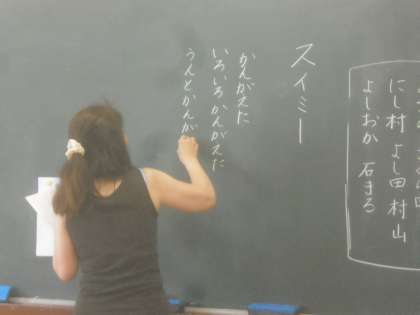 にし村 よし田 村山
よしおか 石まろ
スイミー
かんがえた
いろいろかんがえた
うんとかんが